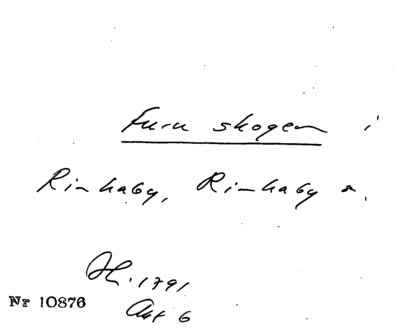 Furuskogen i
Rinkaby, Rinkaby s.
JL. 1791
Akt 6
Nr 10876